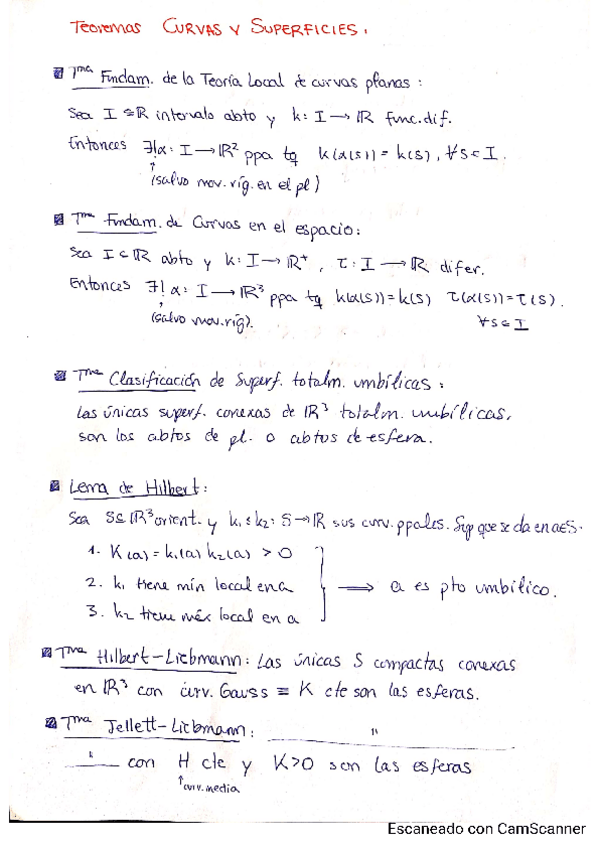 Teoremas CURVAS Y SUPERFICIES.
Tma Fundam. de la Teoría Local de curvas planas:
Sea I ⊆ ℝ intervalo abto y k: I → ℝ func. dif.
Entonces ∃! α: I → ℝ² ppa tq k(α(s)) = k(s), ∀s ∈ I.
(salvo mov. ríg. en el pl)
Tma Fundam. de Curvas en el espacio:
Sea I ⊂ ℝ abto y k: I → ℝ⁺, τ: I → ℝ difer.
Entonces ∃! α: I → ℝ³ ppa tq k(α(s)) = k(s) τ(α(s)) = τ(s).
(salvo mov. ríg). ∀s ∈ I
Tma Clasificación de Superf. totalm. umbílicas:
Las únicas superf. conexas de ℝ³ totalm. umbílicas,
son los abtos de pl. o abtos de esfera.
Lema de Hilbert:
Sea S ⊆ ℝ³ orient. y k₁ ≤ k₂: S → ℝ sus curv. ppales. Sup que se da en a∈S.
1. K(a) = k₁(a) k₂(a) > 0
2. k₁ tiene mín local en a ⟹ a es pto umbílico.
3. k₂ tiene máx local en a
Tma Hilbert-Liebmann: Las únicas S compactas conexas
en ℝ³ con curv. Gauss ≡ K cte son las esferas.
Tma Jellett-Liebmann: ____ " ____
__"__ con H cte y K>0 son las esferas
↑curv. media
Escaneado con CamScanner